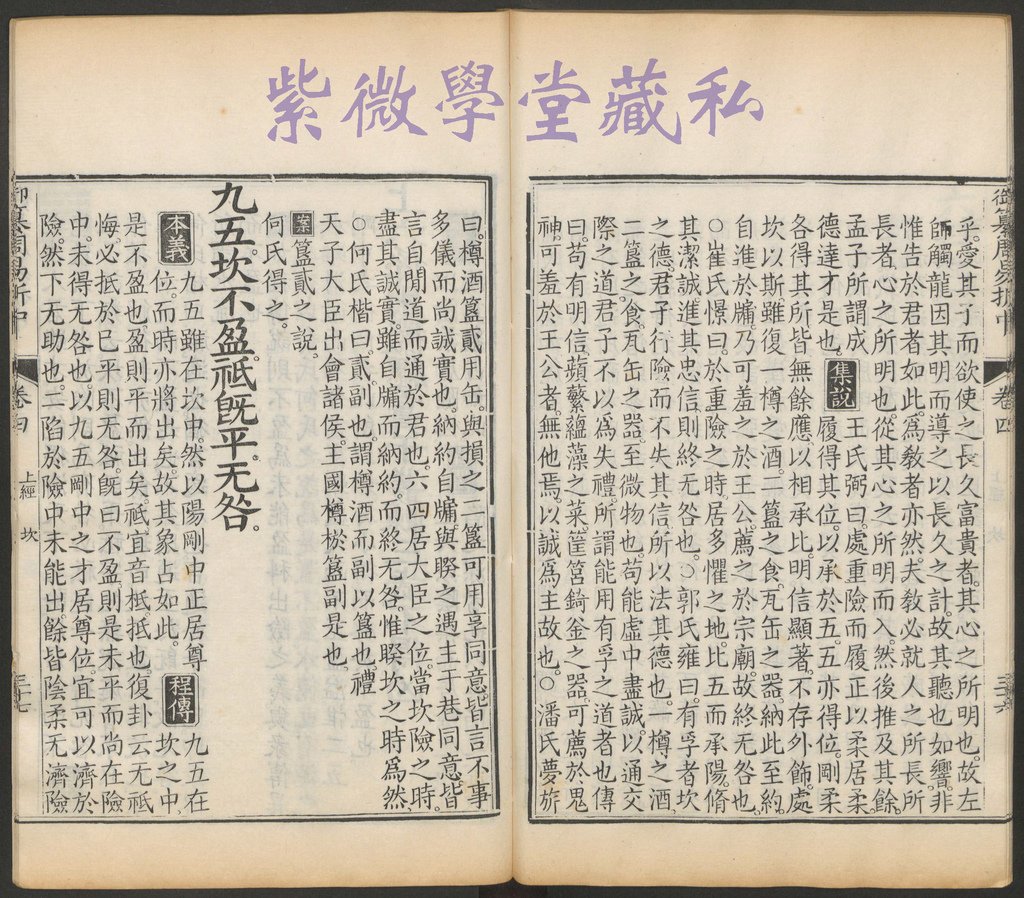 紫微學堂藏私
乎愛其子而欲使之長久富貴者其心之所明也故左
師觸龍因其明而導之以長久之計故其聽也如響非
惟告於君者如此為教者亦然夫教必就人之所長所
長者心之所明也從其心之所明而入然後推及其餘
孟子所謂成
德達才是也 集說 王氏弼曰處重險而履正以柔居柔
履得其位以承於五五亦得位剛柔
各得其所皆無餘應以相承比明信顯著不存外飾處
坎以斯雖復一樽之酒二簋之食瓦缶之器納此至約
自進於牖乃可羞之於王公薦之於宗廟故終无咎也
○崔氏憬曰於重險之時居多懼之地比五而承陽脩
其潔誠進其忠信則終无咎也○郭氏雍曰有孚者坎
之德君子行險而不失其信所以法其德也一樽之酒
二簋之食瓦缶之器至微物也苟能虛中盡誠以通交
際之道君子不以為失禮所謂能用有孚之道者也傳
曰苟有明信蘋蘩蘊藻之菜筐筥錡釜之器可薦於鬼
神可羞於王公者無他焉以誠為主故也○潘氏夢旂
御纂周易折中
卷四
上經 坎
三十六
曰樽酒簋貳用缶與損之二簋可用享同意皆言不事
多儀而尚誠實也納約自牖與睽之遇主于巷同意皆
言自間道而通於君也六四居大臣之位當坎險之時
盡其誠實雖自牖而納約而終无咎惟睽坎之時為然
○何氏楷曰貳副也謂樽酒而副以簋也禮
天子大臣出會諸侯主國樽棜簋副是也
案 簋貳之說
何氏得之
九五坎不盈祗既平无咎
本義 九五雖在坎中然以陽剛中正居尊
位而時亦將出矣故其象占如此 程傳 九五在
坎之中
是不盈也盈則平而出矣祗宜音柢抵也復卦云无祗
悔必抵於已平則无咎既曰不盈則是未平而尚在險
中未得无咎也以九五剛中之才居尊位宜可以濟於
險然下无助也二陷於險中未能出餘皆陰柔无濟險
御纂周易折中
卷四
上經 坎
三十七